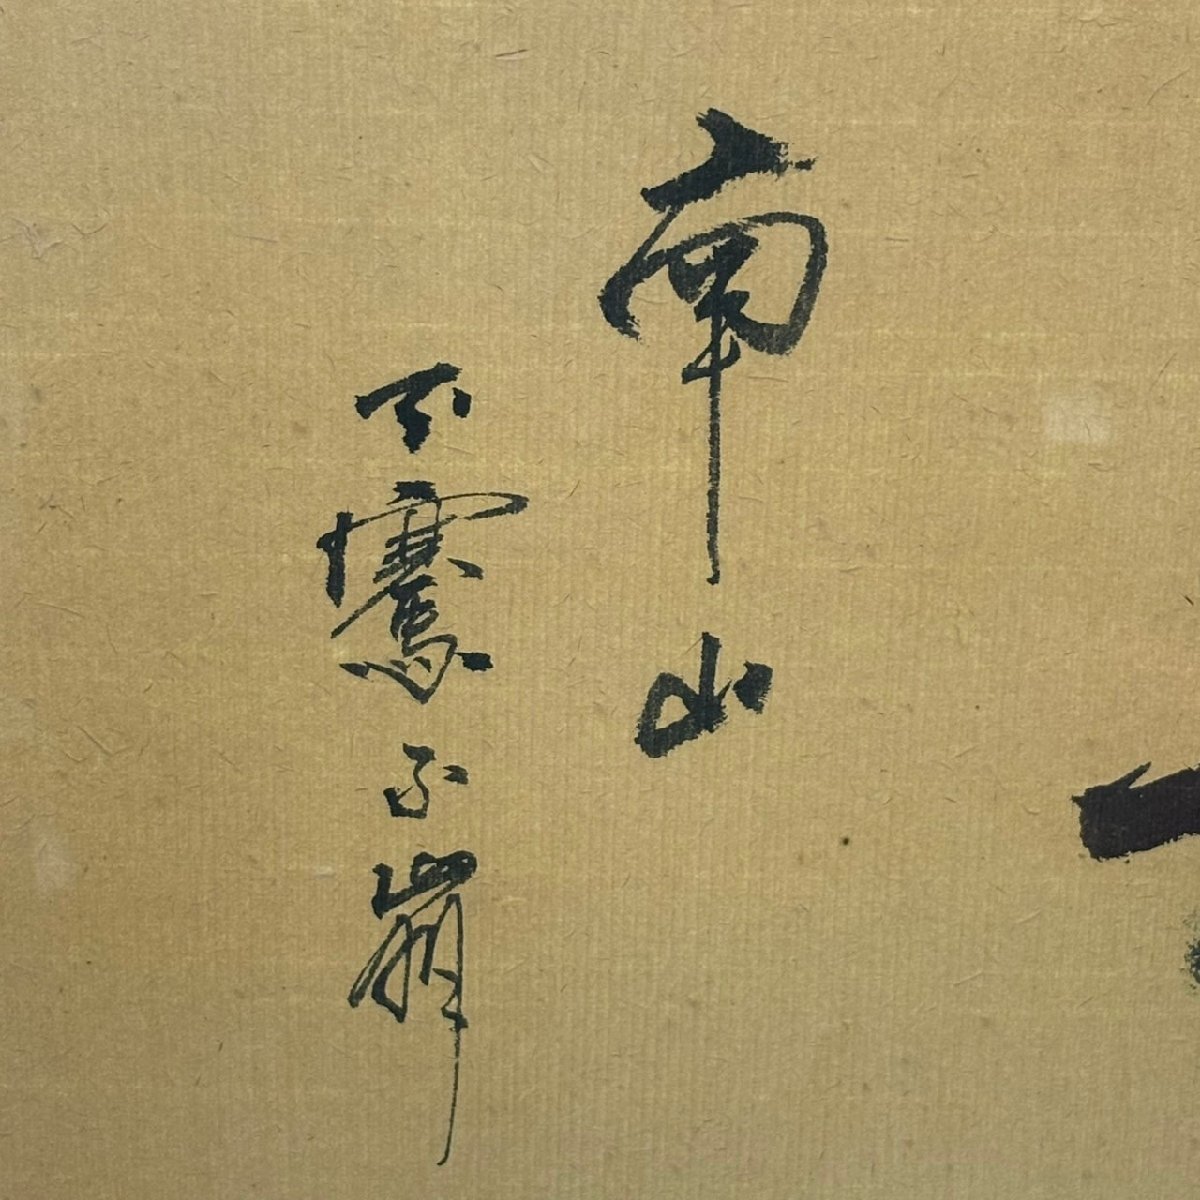 南山
不騫不崩